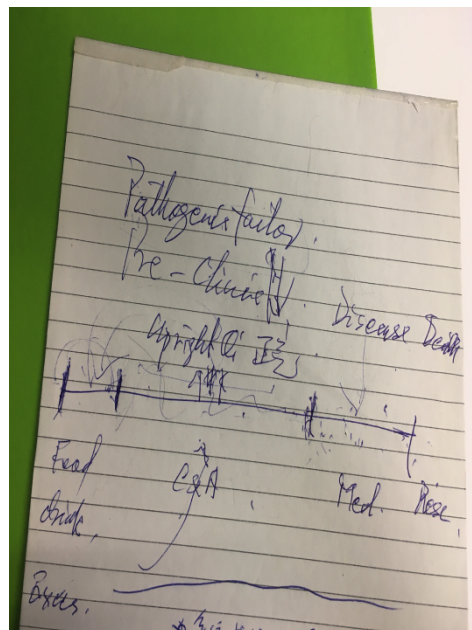 Pathogenic factor.
Pre-Clinic
Disease Death
upright Qi
Food C&A Med. Rose
drink,
Exer.